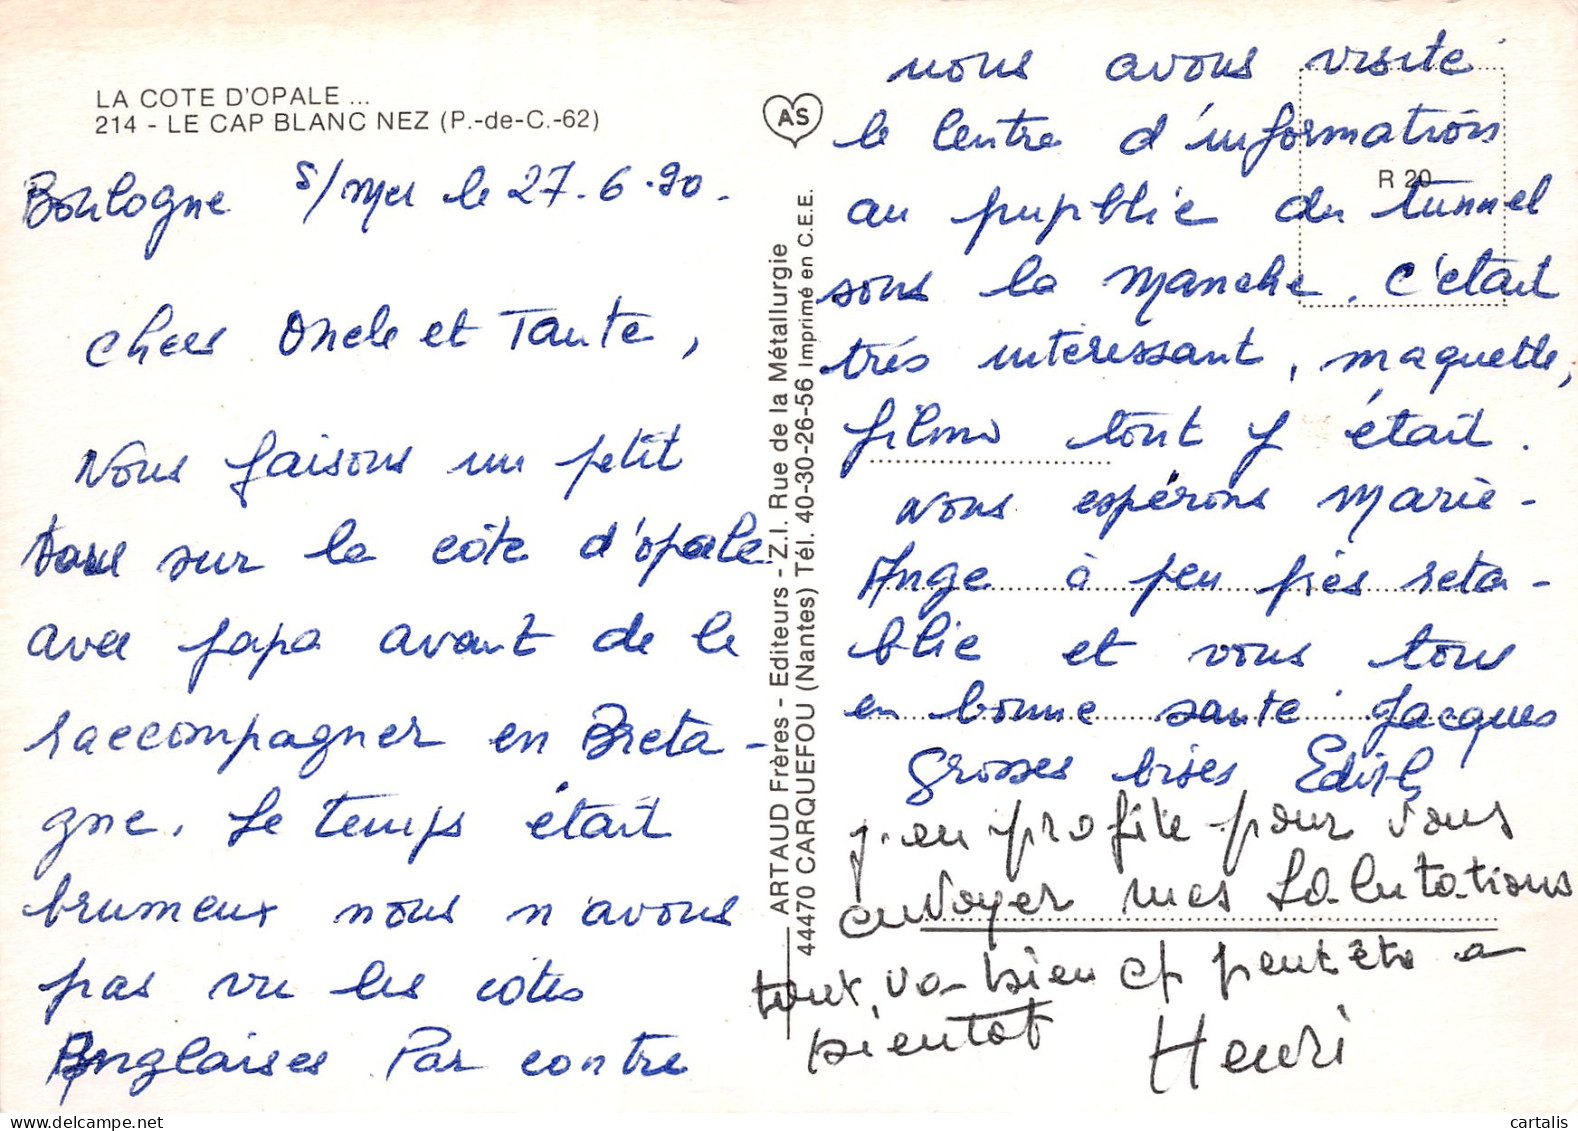 LA COTE D'OPALE ...
214 - LE CAP BLANC NEZ (P.-de-C.-62)
Boulogne s/mer le 27.6.90.
chers Oncle et Tante,
Nous faisons un petit
tour sur la côte d'opale
avec papa avant de le
raccompagner en Breta-
gne. Le temps était
brumeux nous n'avons
pas vu les côtes
Anglaises Par contre
AS
ARTAUD Frères - Editeurs - Z.I. Rue de la Métallurgie
44470 CARQUEFOU (Nantes) Tél. 40-30-26-56 Imprimé en C.E.E.
R 20
nous avons visité
le Centre d'informations
au pupblic du tunnel
sous la manche. C'était
très intéressant, maquette,
films tout y était.
Nous espérons Marie-
Ange à peu près réta-
blie et vous tous
en bonne santé. Jacques
Grosses bises Edith
j'en profite pour vous
envoyer mes Salutations
tout va bien et peut être a
bientot Henri
cartalis